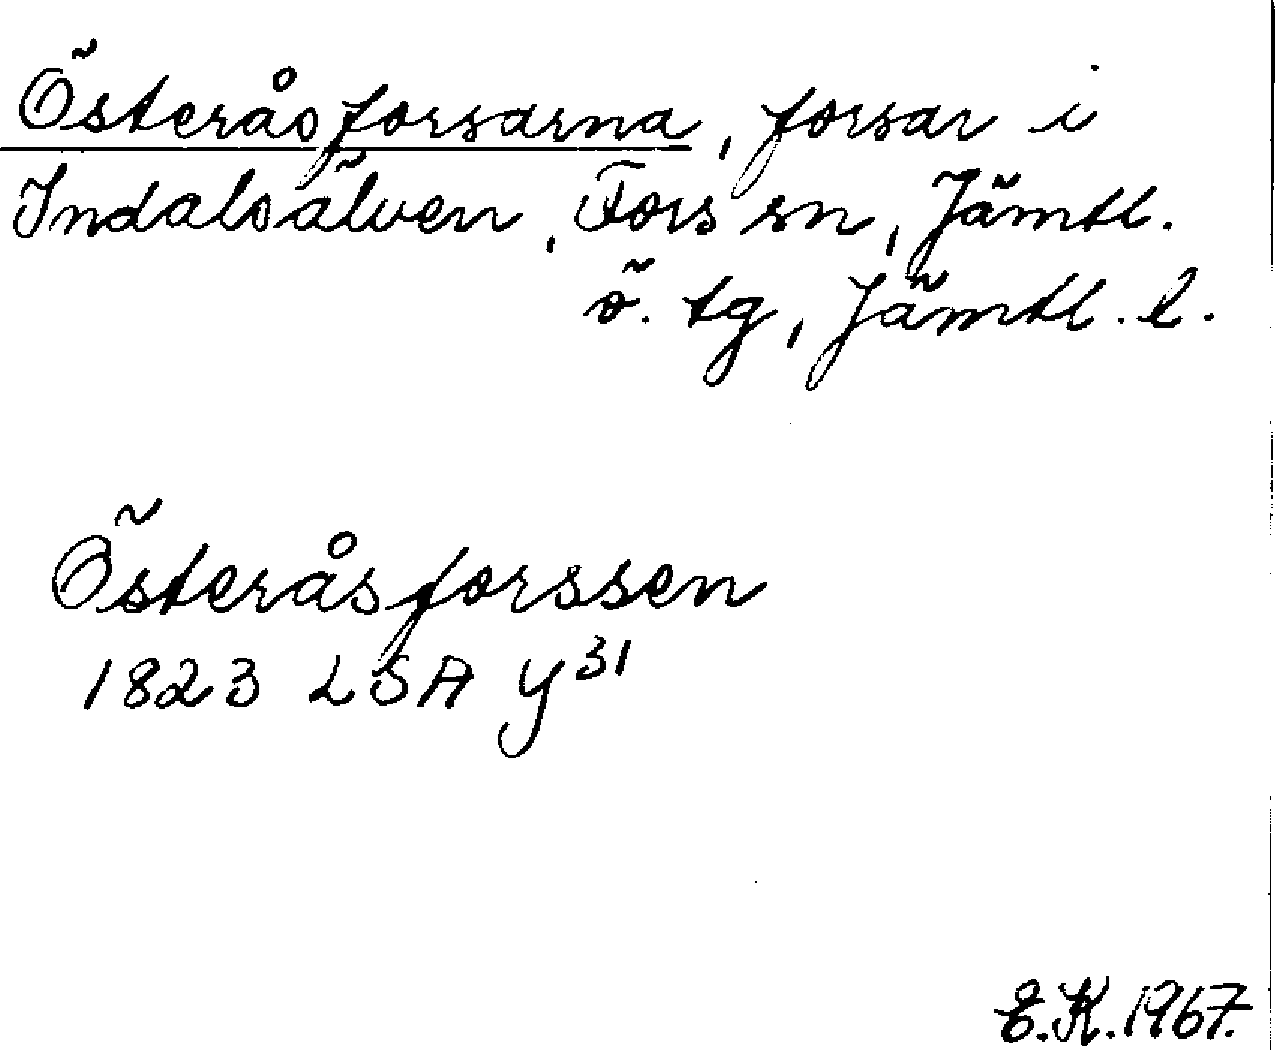 Österåsforsarna, forsar i
Indalsälven, Fors sn, Jämtl.
ö. tg, Jämtl. l.
Österåsforssen
1823 LSA Y31
E.K. 1967.